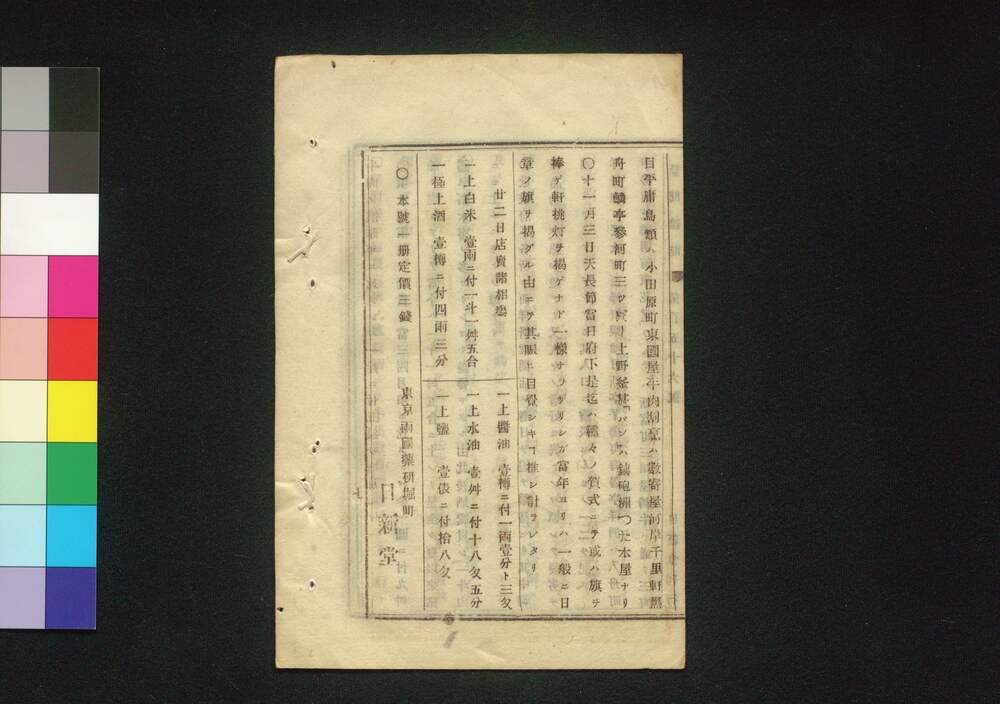 目平庸鳥類ハ小田原町東國屋牛肉割烹ハ數寄屋河岸千里軒黑
舟町鱗亭參河町三ツ家リ上野釜甚「パン」ハ銕砲洲つた本屋ナリ
〇十一月三日天長節當日府下是迄ハ種々ノ賀式ニテ或ハ旗ヲ
捧ゲ軒桃灯ヲ揭ゲナド一樣ナラザリシガ當年ヨリハ一般ニ日
章ノ旗ヲ揭グル由ニテ其賑ヒ目覺シキヿ推シ計ラレタリ
廿二日店賣諸相塲
一上醬油 壹樽ニ付一兩壹分ト三匁
一上白米 壹兩ニ付一斗一舛五合
一上水油 壹舛ニ付十八匁五分
一極上酒 壹樽ニ付四兩三分
一上鹽 壹俵ニ付拾八匁
〇本號一册定價三錢
東京兩國藥研堀町
日新堂
七